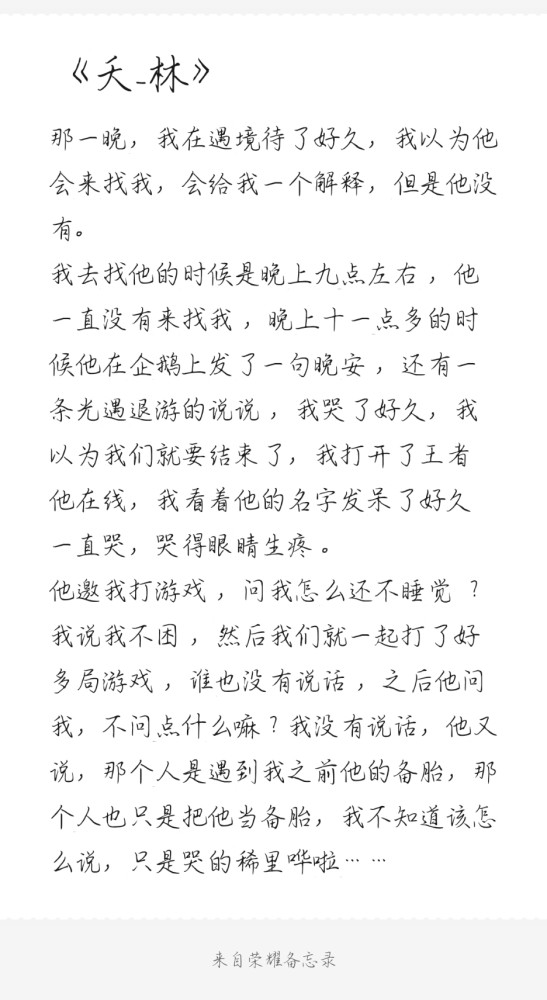 《夭_林》
那一晚，我在遇境待了好久，我以为他
会来找我，会给我一个解释，但是他没
有。
我去找他的时候是晚上九点左右，他
一直没有来找我，晚上十一点多的时
候他在企鹅上发了一句晚安，还有一
条光遇退游的说说，我哭了好久，我
以为我们就要结束了，我打开了王者
他在线，我看着他的名字发呆了好久
一直哭，哭得眼睛生疼。
他邀我打游戏，问我怎么还不睡觉？
我说我不困，然后我们就一起打了好
多局游戏，谁也没有说话，之后他问
我，不问点什么嘛？我没有说话，他又
说，那个人是遇到我之前他的备胎，那
个人也只是把他当备胎，我不知道该怎
么说，只是哭的稀里哗啦……
来自荣耀备忘录